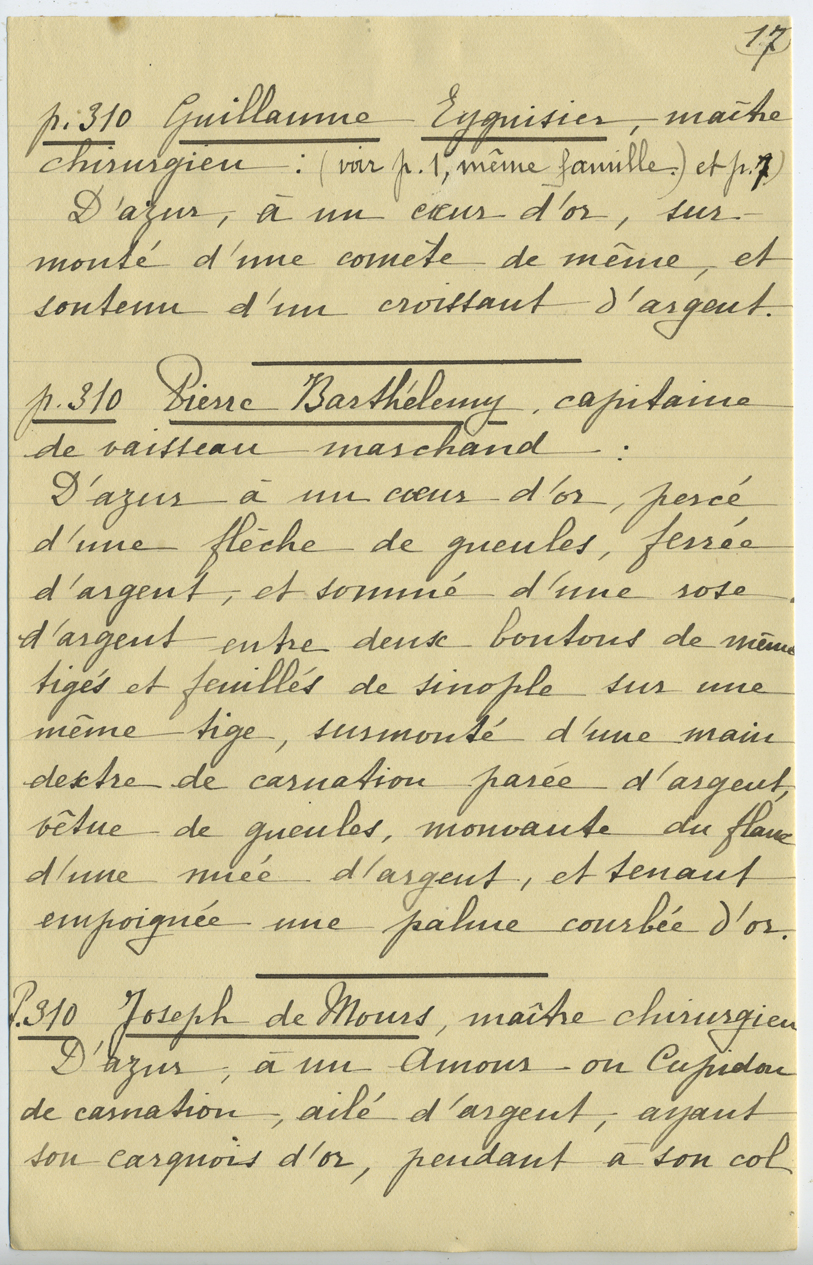 17
p.310 Guillaume Eyguisier, maître
chirurgien : (voir p.1, même famille.) et p.7)
D'azur, à un cœur d'or, sur-
monté d'une comète de même, et
soutenu d'un croissant d'argent.
p.310 Pierre Barthélemy, capitaine
de vaisseau marchand :
D'azur à un cœur d'or, percé
d'une flèche de gueules, ferrée
d'argent, et sommé d'une rose
d'argent entre deux boutons de même
tigés et feuillés de sinople sur une
même tige, surmonté d'une main
dextre de carnation parée d'argent,
vêtue de gueules, mouvante du flanc
d'une nuée d'argent, et tenant
empoignée une palme courbée d'or.
P.310 Joseph de Mours, maître chirurgien
D'azur, à un Amour ou Cupidon
de carnation, ailé d'argent, ayant
son carquois d'or, pendant à son col